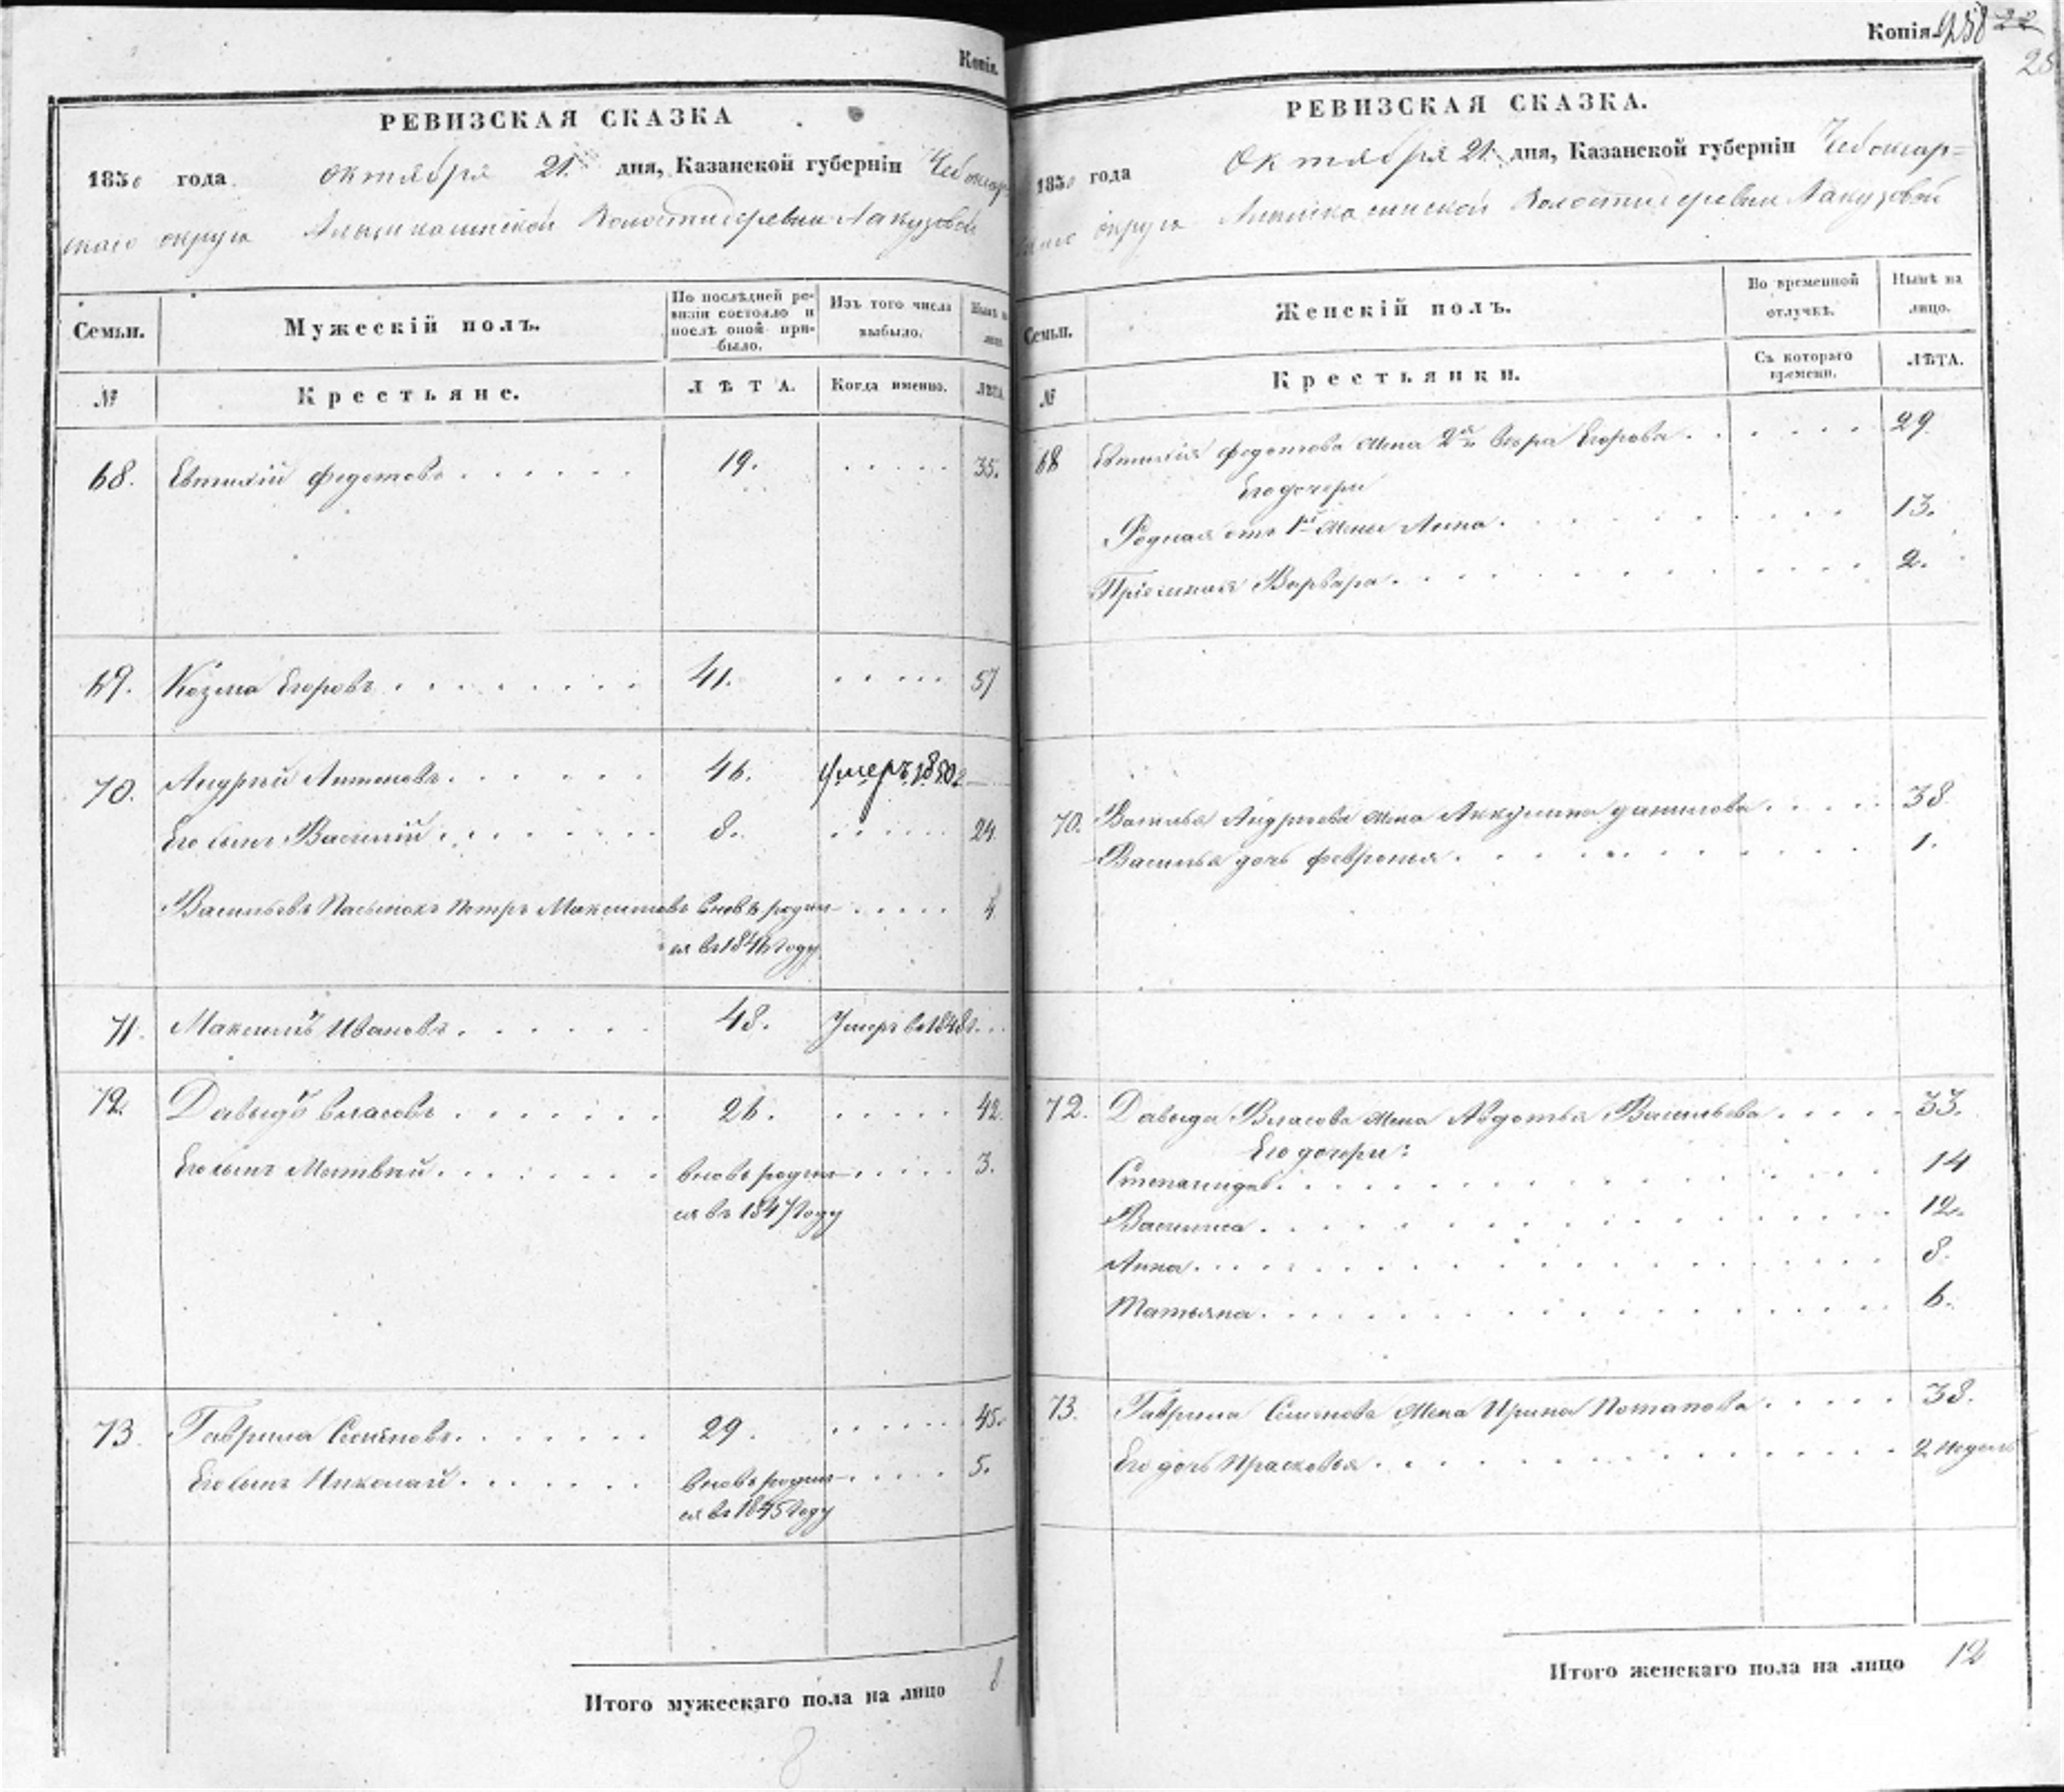 Копія.
РЕВИЗСКАЯ СКАЗКА
1850 года Октября 21. дня, Казанской губерніи Чебоксар
скаго округа Волости деревни Лакузовой
Семьи.
Мужескій полъ.
По послѣдней ре-
визіи состояло и
послѣ оной при-
было.
Изъ того числа
выбыло.
Нынѣ на
лицо.
№
Крестьяне.
ЛѢТА.
Когда именно.
ЛѢТА.
68. Евтихій Федотовъ 19. 35.
69. Козма Егоровъ 41. 57
70. Андрей Антоновъ 46. Умеръ 1850 г.
Его сынъ Василій 8. 24.
Васильевъ Пасынокъ Петръ Максимовъ вновь родил 4
ся въ 1846 году
71. Максимъ Ивановъ 48. Умеръ въ 1848 г.
72. Давыдъ Власовъ 26. 42.
Его сынъ Матвѣй вновь родил 3.
ся въ 1847 году
73. Гаврила Семеновъ 29. 45.
Его сынъ Николай вновь родил 5.
ся въ 1845 году
Итого мужескаго пола на лицо
8
Копія. 258 22
РЕВИЗСКАЯ СКАЗКА.
1850 года Октября 21. дня, Казанской губерніи Чебоксар=
скаго округа Волости деревни Лакузовой
Семьи.
Женскій полъ.
Во временной
отлучкѣ.
Нынѣ на
лицо.
№
Крестьянки.
Съ котораго
времени.
ЛѢТА.
68 Евтихія Федотова жена 2я Вѣра Егорова 29.
Его дочери
Родная отъ 1й жены Анна 13.
Пріемная Варвара 2.
70. Василья Андреева жена Аккулина Данилова 38
Василья дочь Февронья 1.
72. Давыда Власова жена Авдотья Васильева 33.
Его дочери:
Степанида 14
Василиса 12.
Анна 8.
Татьяна 6.
73. Гаврила Семенова жена Ирина Потапова 38.
Его дочь Прасковья 2 недели
Итого женскаго пола на лицо 12